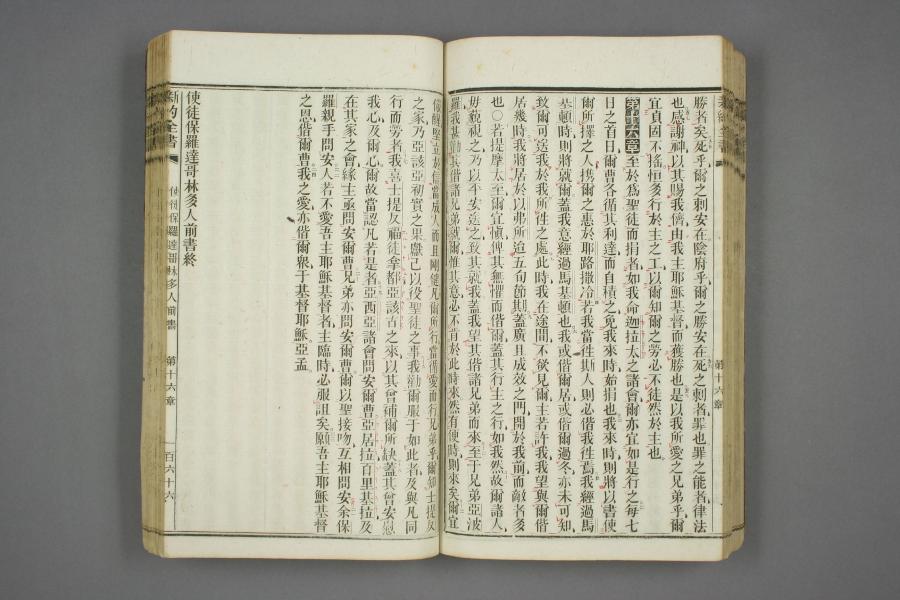 勝者矣死乎爾之刺安在陰府乎爾之勝安在死之刺者罪也罪之能者律法
也感謝神以其賜我儕由我主耶穌基督而獲勝也是以我所愛之兄弟乎爾
宜貞固不搖恒多行於主之工以爾知爾之勞必不徒然於主也
第十六章至於爲聖徒而捐者如我命迦拉太之諸會爾亦宜如是行之每七
日之首日爾曹各循其利達而自積之免我來時始捐也我來時則將以書使
爾所擇之人携爾之惠於耶路撒冷若我當徃斯人則必偕我徃焉我經過馬
基頓時則將就爾蓋我意經過馬基頓也我或偕爾居或偕爾過冬亦未可知
致爾可送我於我所徃之處此時我在途間不欲見爾主若許我我望與爾偕
居幾時我將居於以弗所迨五旬節其蓋廣且成效之門開於我前而敵者多
也〇若提摩太至爾宜愼俾其無懼而偕爾蓋其行主之行如我然故爾諸人
毋藐視之乃以平安送之致其就我蓋我望其偕諸兄弟而來至于兄弟亞波
羅我甚勸其偕諸兄弟就爾惟其意必不肯於此時來然有便時則來矣爾宜
儆醒堅立於信當成人而且剛健凡爾所行當偕愛而行兄弟乎爾知士提反
之家乃亞該亞初實之果獻己以役聖徒之事我勸爾服于如此者及與凡同
行而勞者我喜士提反福徒拿都亞該古之來以其曾補爾所缺蓋其曾安慰
我心及爾心爾故當認凡若是者亞西亞諸會問安爾曹亞居拉百里基拉及
在其家之會緣主亟問安爾曹兄弟亦問安爾曹爾以聖接吻互相問安余保
羅親手問安人若不愛吾主耶穌基督者主臨時必服詛矣願吾主耶穌基督
之恩偕爾曹我之愛亦偕爾衆于基督耶穌亞孟
使徒保羅達哥林多人前書終
新約全書 使徒保羅達哥林多人前書 第十六章 百六十六